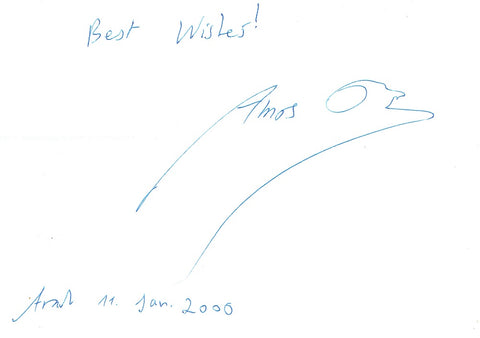 Best Wishes!
Amos Oz
Arad 11. Jan. 2000